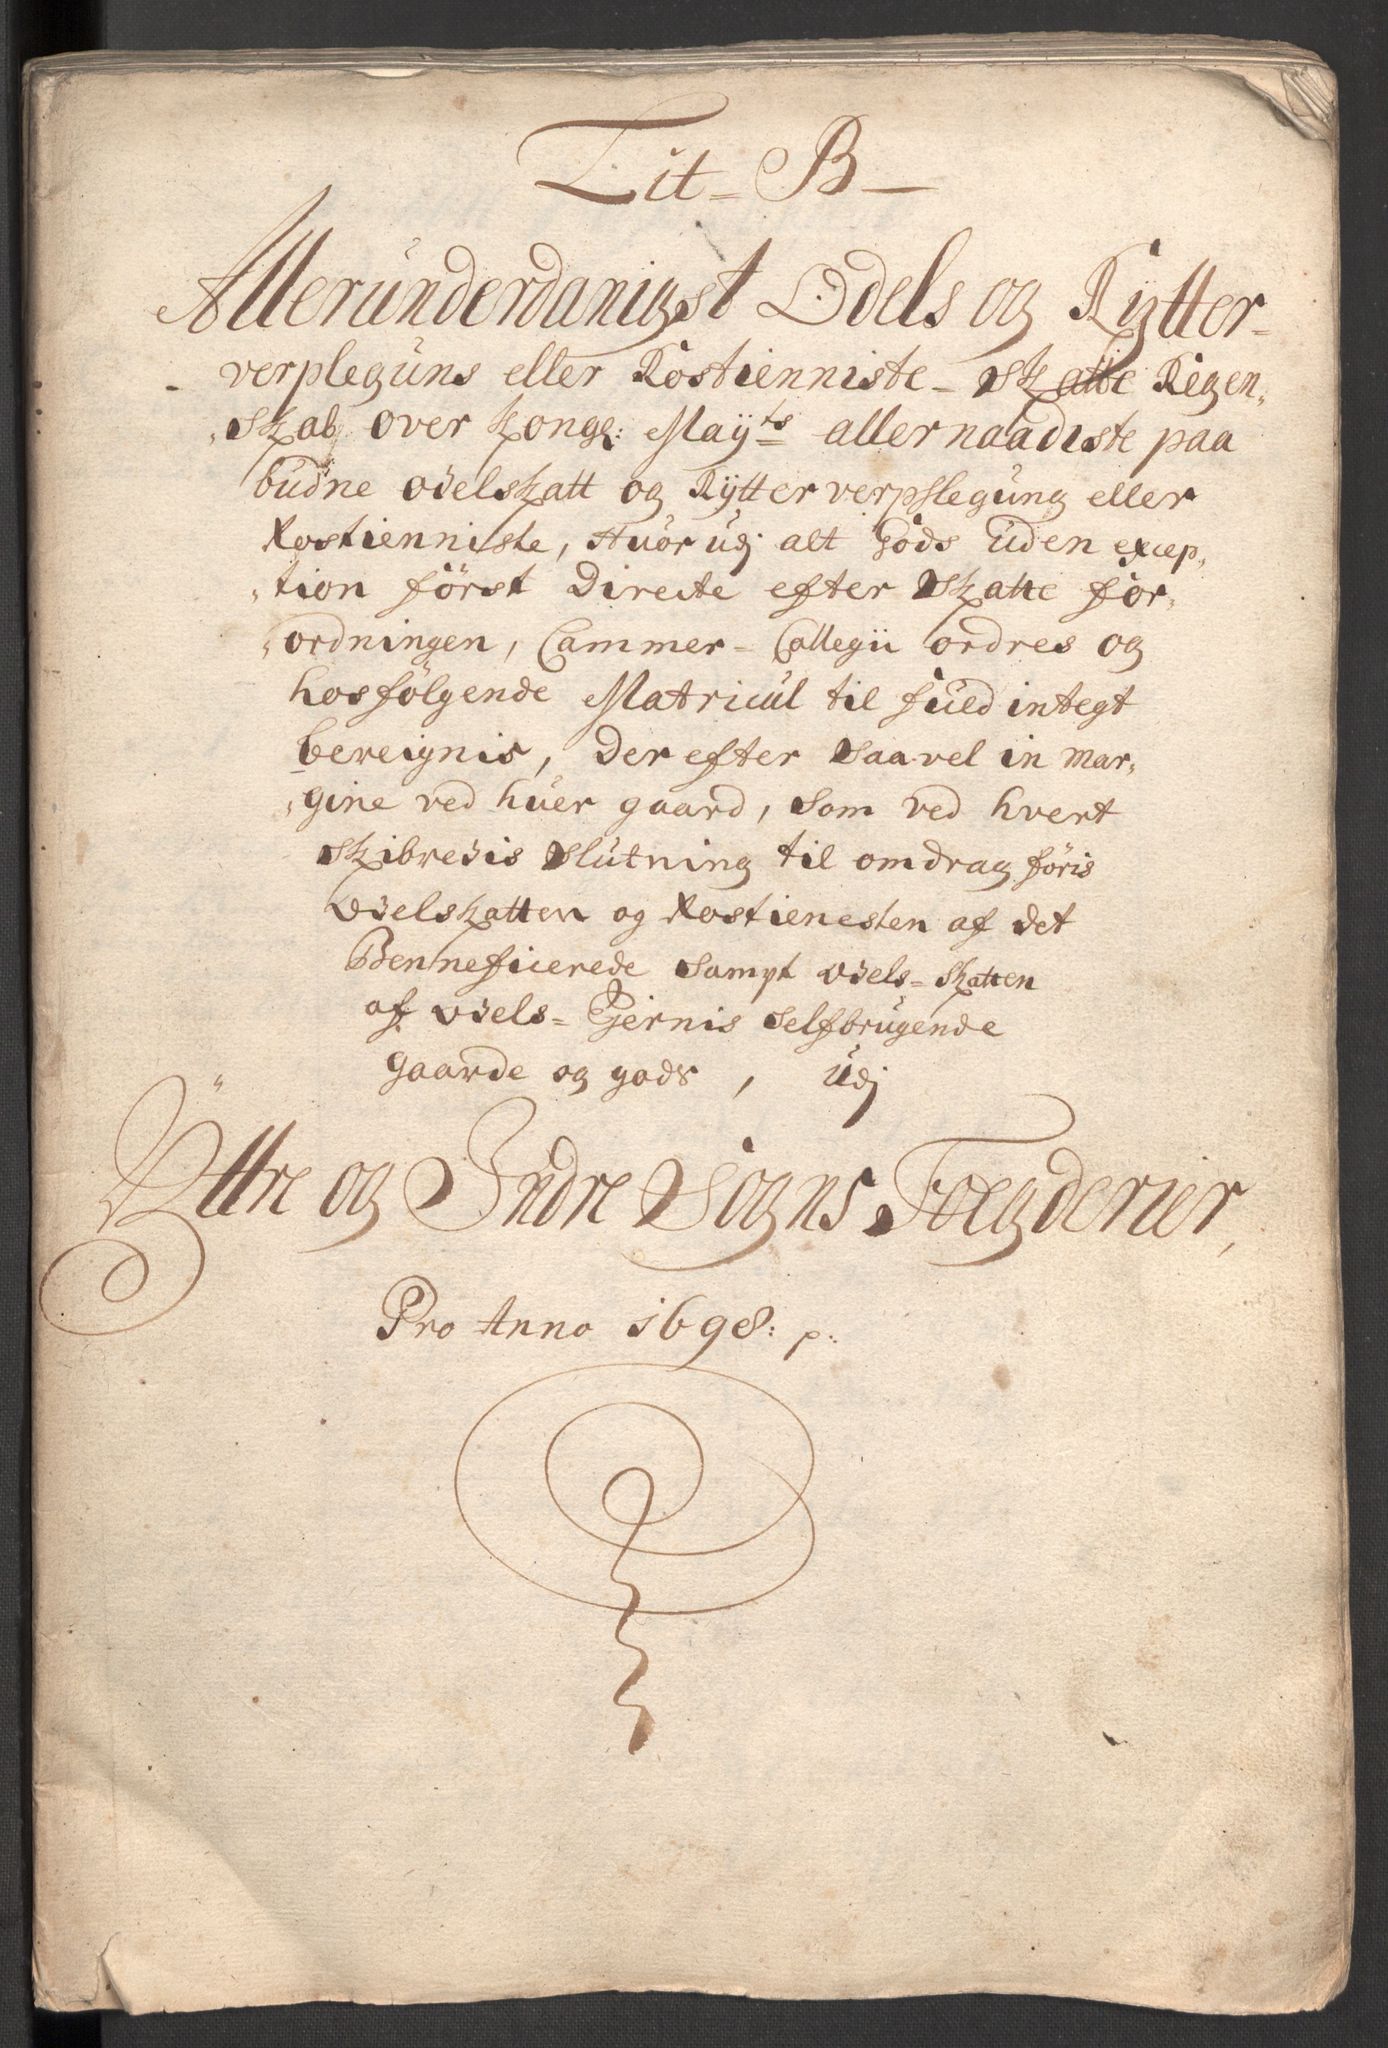 Lit - B -
Alleründerdanigst Odels og Rÿtter-
verplegüns eller Rostienniste - Skatte Regen-
-skab over Kongl: Maÿts allernaadiste paa
büdne odelskatt og Rÿtterverpflegüng eller
Rostienniste, Huor udj alt Gods üden excep-
-tion först Directe efter Skatte for-
-ordningen, Cammer-Collegii ordres og
hosfölgende Matricul til fuld integt
bereignis, Der efter saavel in mar-
-gine ved huer gaard, som ved hvert
skibredis slutning til omdrag föris
odelskatten og Rostienesten af det
Benneficerede sampt odels-skatten
af odels-Ejernis selfbrugende
gaarde og gods, Udj
Ÿttre og Indre Sogns Foegderier,
Pro Anno 1698: p: